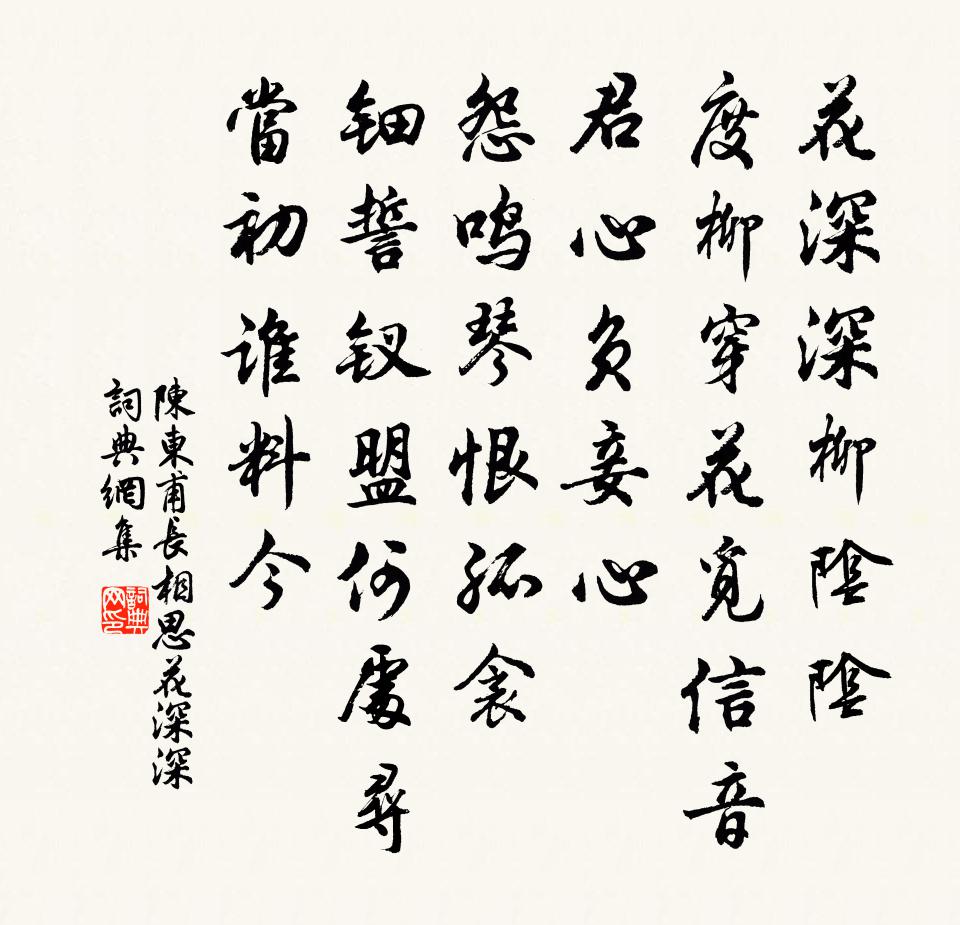 花深深柳陰陰
度柳穿花覓信音
君心負妾心
怨鳴琴恨孤衾
鈿誓釵盟何處尋
當初誰料今
陳東甫長相思花深深
詞典網集
詞典网印